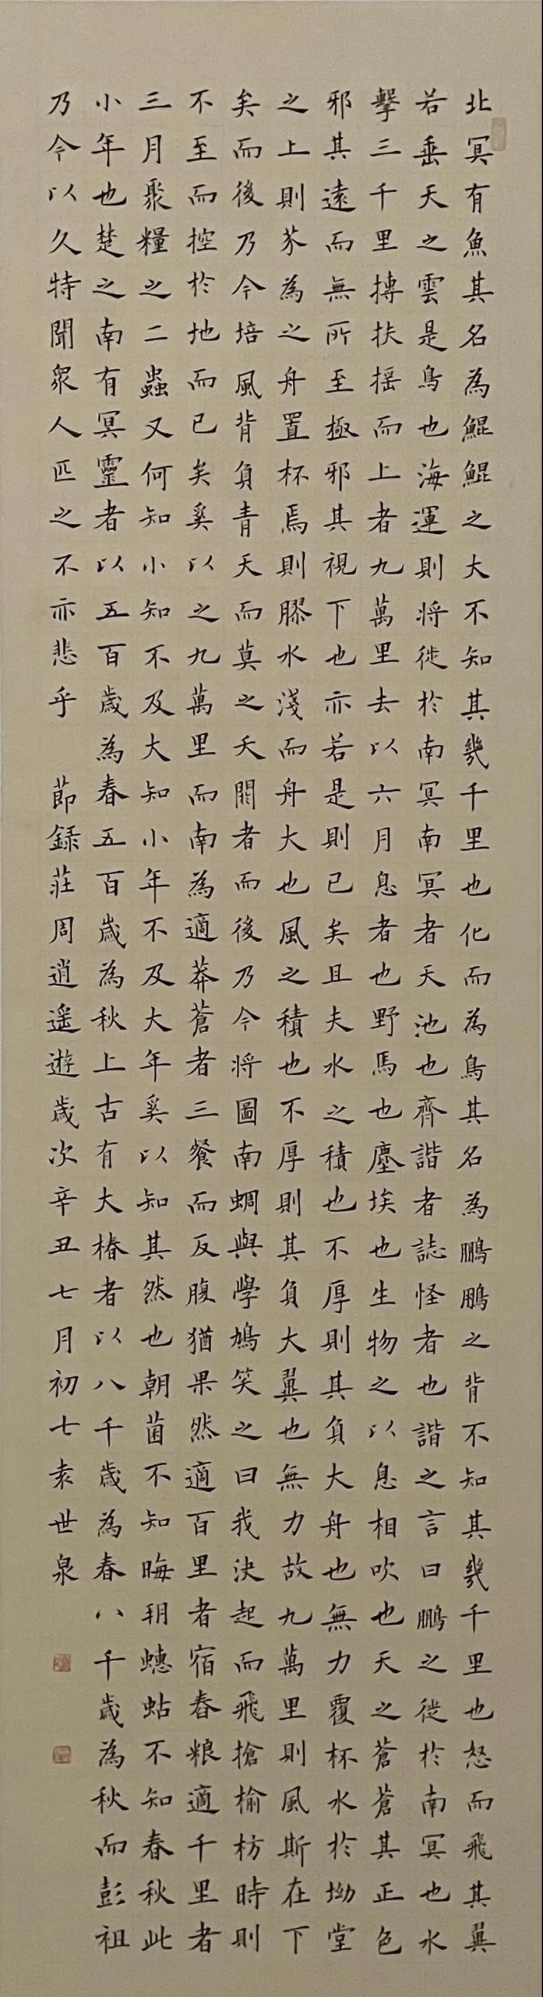 北冥有魚其名為鯤鯤之大不知其幾千里也化而為鳥其名為鵬鵬之背不知其幾千里也怒而飛其翼
若垂天之雲是鳥也海運則將徙於南冥南冥者天池也齊諧者誌怪者也諧之言曰鵬之徙於南冥也水
擊三千里摶扶搖而上者九萬里去以六月息者也野馬也塵埃也生物之以息相吹也天之蒼蒼其正色
邪其遠而無所至極邪其視下也亦若是則已矣且夫水之積也不厚則其負大舟也無力覆杯水於坳堂
之上則芥為之舟置杯焉則膠水淺而舟大也風之積也不厚則其負大翼也無力故九萬里則風斯在下
矣而後乃今培風背負青天而莫之夭閼者而後乃今將圖南蜩與學鳩笑之曰我決起而飛搶榆枋時則
不至而控於地而已矣奚以之九萬里而南為適莽蒼者三餐而反腹猶果然適百里者宿舂粮適千里者
三月聚糧之二蟲又何知小知不及大知小年不及大年奚以知其然也朝菌不知晦朔蟪蛄不知春秋此
小年也楚之南有冥靈者以五百歲為春五百歲為秋上古有大椿者以八千歲為春八千歲為秋而彭祖
乃今以久特聞眾人匹之不亦悲乎 節錄莊周逍遙遊歲次辛丑七月初七袁世泉